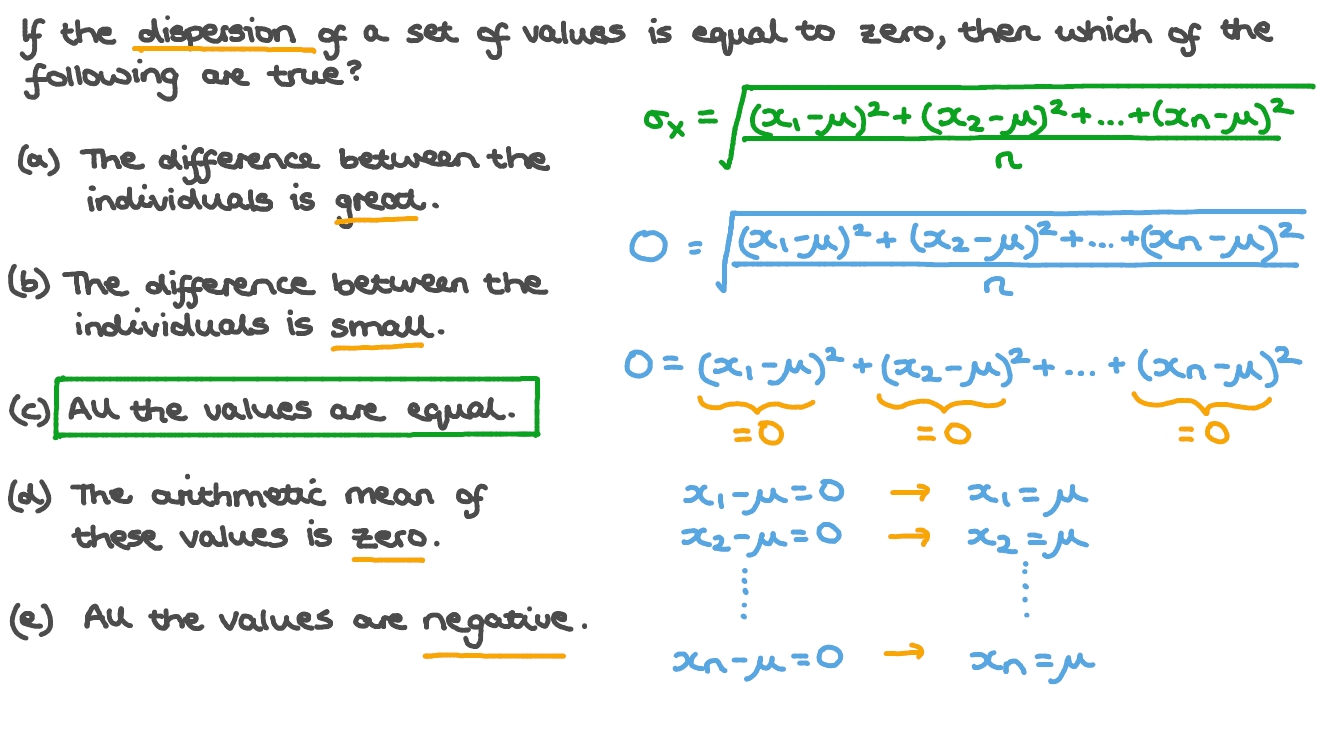 If the dispersion of a set of values is equal to zero, then which of the
following are true?
(a) The difference between the
individuals is great.
(b) The difference between the
individuals is small.
(c) All the values are equal.
(d) The arithmetic mean of
these values is zero.
(e) All the values are negative.
σx = √((x₁-μ)² + (x₂-μ)² + ... + (xn-μ)² / n)
0 = √((x₁-μ)² + (x₂-μ)² + ... + (xn-μ)² / n)
0 = (x₁-μ)² + (x₂-μ)² + ... + (xn-μ)²
=0 =0 =0
x₁-μ=0 → x₁=μ
x₂-μ=0 → x₂=μ
xn-μ=0 → xn=μ